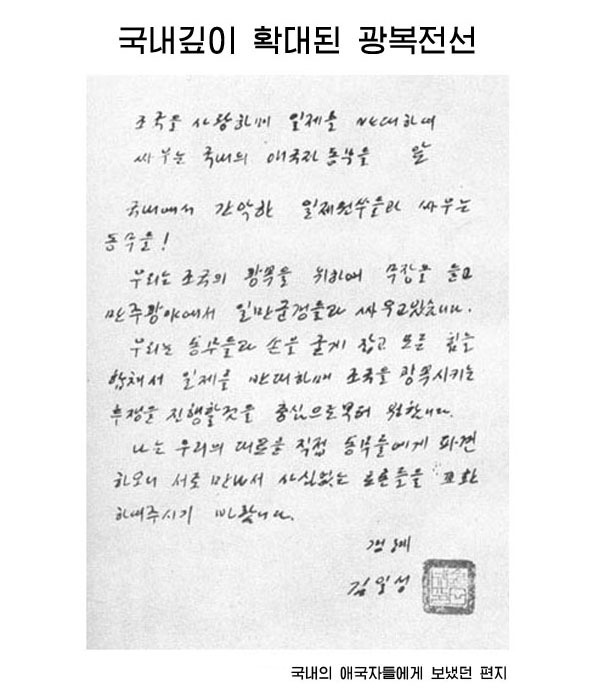 국내깊이 확대된 광복전선
조국을 사랑하며 일제를 반대하여
싸우는 국내의 애국자 동무들 앞
국내에서 간악한 일제원쑤들과 싸우는
동무들!
우리는 조국의 광복을 위하여 무장을 들고
만주광야에서 일만군경들과 싸우고있습니다.
우리는 동무들과 손을 굳게 잡고 모든 힘을
합쳐서 일제를 반대하며 조국을 광복시키는
투쟁을 진행할것을 충심으로부터 원합니다.
나는 우리의 대표를 직접 동무들에게 파견
하오니 서로 만나서 사심없는 토론들을 교환
하여주시기 바랍니다.
경례
김일성
국내의 애국자들에게 보냈던 편지